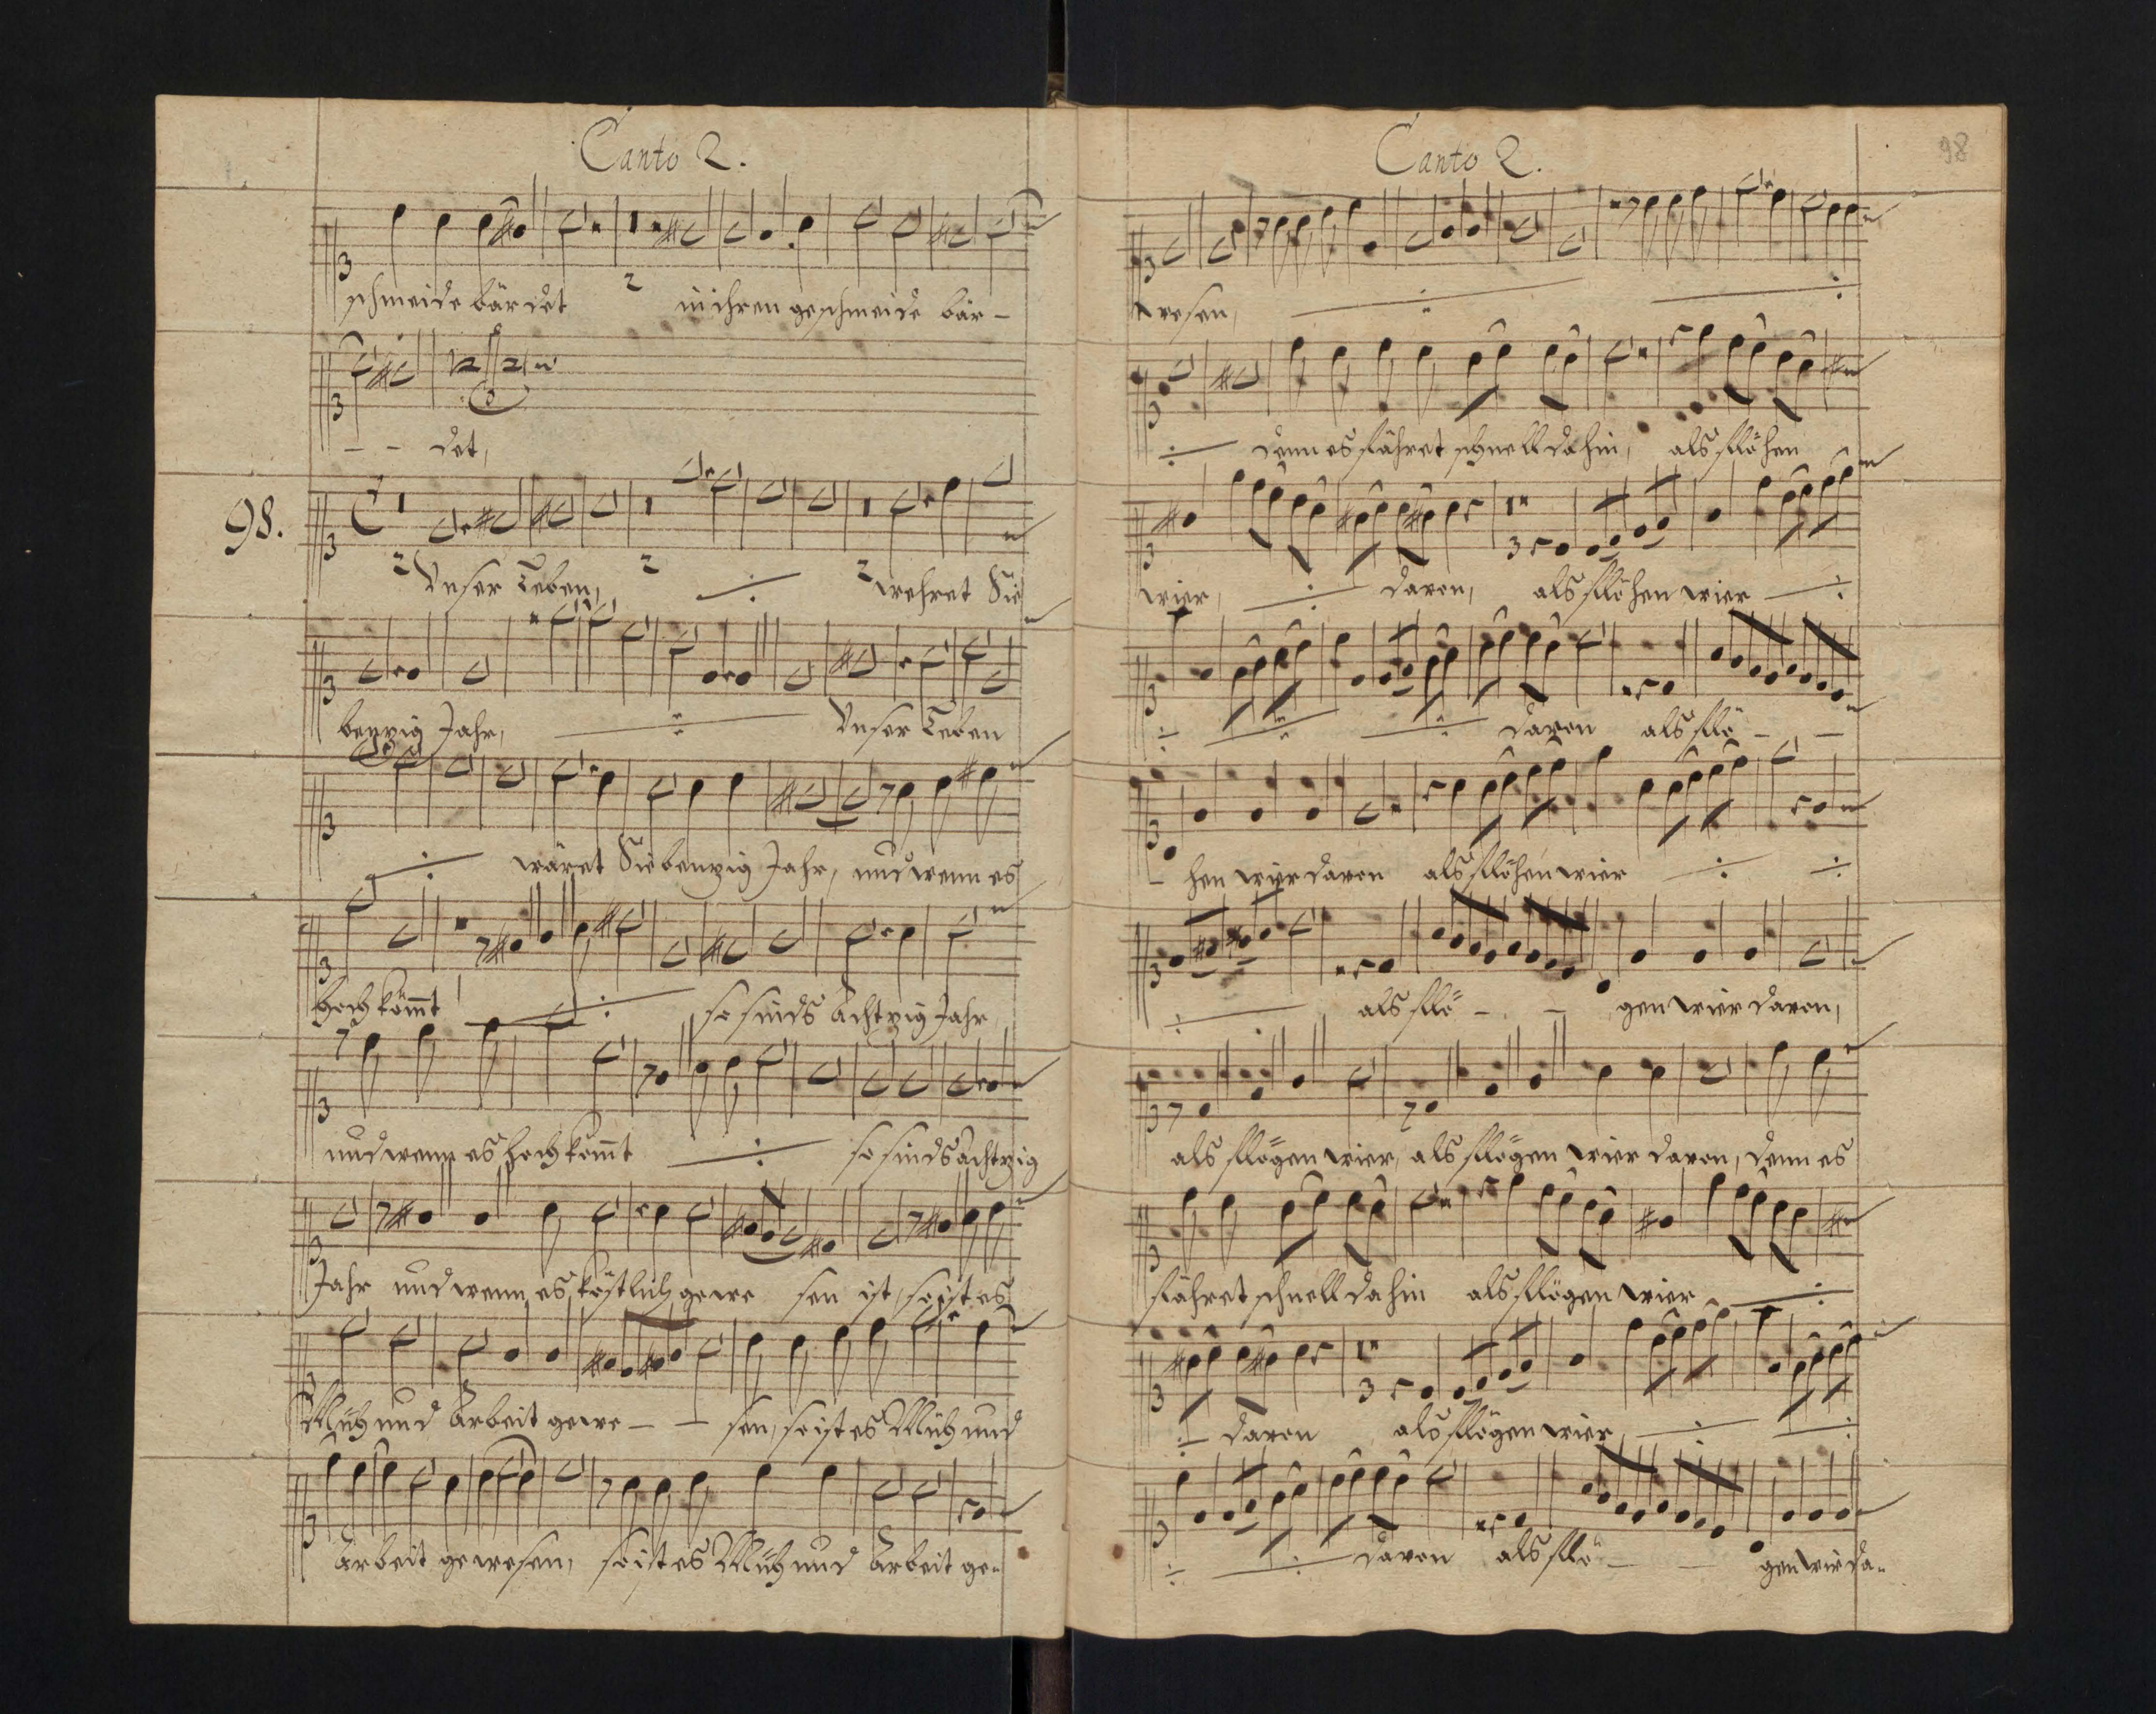 Canto 2.
schmeide bärdet in ihren geschmeide bär-
- - det,
98.
Unser Leben, wehret Sie
benzig Jahr, Unser Leben
wäret Siebenzig Jahr, und wenn es
hoch kömt so sinds Achtzig Jahr
und wenn es hoch kömt so sinds Achtzig
Jahr und wenn es köstlich gewe sen ist, so ist es
Müh und Arbeit gewe - - sen, so ist es Müh und
Arbeit gewesen, so ist es Müh und Arbeit ge-
Canto 2.
98
wesen,
denn es fähret schnell dahin, als flöhen
wier, davon, als flöhen wier
davon als flö - -
- hen wier davon als flöhen wier
als flö - - gen wier davon,
als flögen wier, als flögen wier davon, denn es
fähret schnell dahin als flögen wier
davon als flögen wier
davon als flö - - gen wier da-